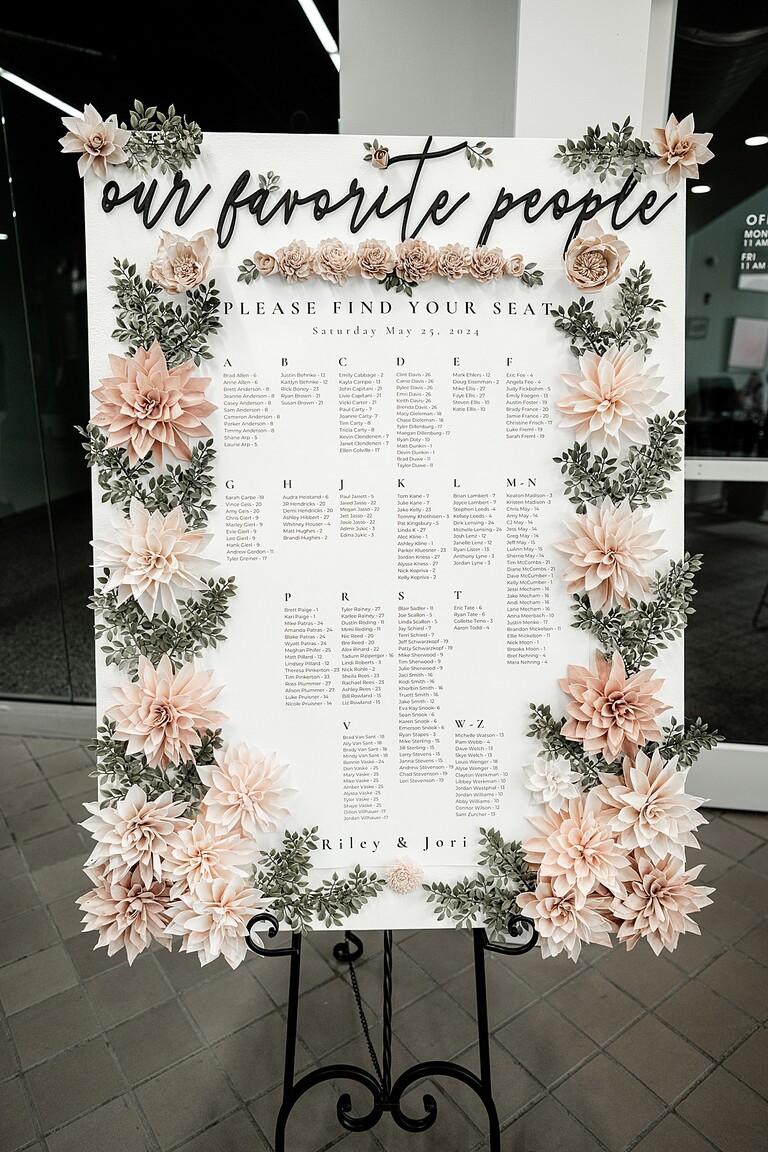 our favorite people
PLEASE FIND YOUR SEAT
Saturday May 25, 2024
A
Brad Allen - 6
Anne Allen - 6
Brett Anderson - 8
Jeanne Anderson - 8
Casey Anderson - 8
Sam Anderson - 8
Cameron Anderson - 8
Parker Anderson - 8
Timmy Anderson - 8
Shane Arp - 5
Laurie Arp - 5
B
Justin Behnke - 12
Kaitlyn Behnke - 12
Rick Boney - 23
Ryan Brown - 21
Susan Brown - 21
C
Emily Cabbage - 2
Kayla Campo - 13
John Capitani - 21
Livie Capitani - 21
Vicki Carter - 21
Paul Carty - 7
Joanne Carty - 7
Tim Carty - 8
Tricia Carty - 8
Kevin Clendenen - 7
Janet Clendenen - 7
Ellen Colville - 17
D
Clint Davis - 26
Carrie Davis - 26
Rylee Davis - 26
Emri Davis - 26
Keith Davis - 26
Brenda Davis - 26
Macy Dieleman - 18
Chase Dieleman - 18
Tyler Dillenburg - 17
Maegan Dillenburg - 17
Ryan Doty - 10
Matt Dunkin - 1
Devin Dunkin - 1
Brad Duwe - 11
Taylor Duwe - 11
E
Mark Ehlers - 12
Doug Eisenman - 2
Mike Ellis - 27
Faye Ellis - 27
Steven Ellis - 10
Katie Ellis - 10
F
Eric Fee - 4
Angela Fee - 4
Judy Fickbohm - 5
Emily Foegen - 13
Austin Foster - 19
Brady France - 20
Jamie France - 20
Christine Frisch - 17
Luke Freml - 19
Sarah Freml - 19
G
Sarah Garpe - 19
Vince Geis - 20
Amy Geis - 20
Chris Gierl - 9
Marley Gierl - 9
Evie Gierl - 9
Leo Gierl - 9
Hank Gierl - 9
Andrew Gorton - 11
Tyler Greiner - 17
H
Audra Heistand - 6
JR Hendricks - 20
Demi Hendricks - 20
Ashley Hibbert - 27
Whitney Houser - 4
Matt Hughes - 2
Brandi Hughes - 2
J
Paul Jarrett - 5
Jared Jasso - 22
Megan Jasso - 22
Jett Jasso - 22
Josie Jasso - 22
Admir Jukic - 3
Edina Jukic - 3
K
Tom Kane - 7
Julie Kane - 7
Jake Kelly - 23
Tommy Khothisen - 3
Linda K - 27
Pat Kingsbury - 5
Alec Kline - 1
Ashley Kline - 1
Parker Kluesner - 23
Jordan Kness - 27
Alyssa Kness - 27
Nick Kopriva - 2
Kelly Kopriva - 2
L
Brian Lambert - 7
Joyce Lambert - 7
Stephen Leeds - 4
Kelsey Leeds - 4
Dirk Lensing - 24
Michelle Lensing - 24
Josh Lenz - 12
Janelle Lenz - 12
Ryan Lister - 13
Anthony Lyne - 3
Jordan Lyne - 3
M-N
Keaton Madison - 3
Kristen Madison - 3
Chris May - 14
Amy May - 14
CJ May - 14
Jess May - 14
Greg May - 14
Jeff May - 15
LuAnn May - 15
Sherrie May - 14
Tim McCombs - 21
Diane McCombs - 21
Dave McCumber - 1
Kelly McCumber - 1
Jessi Mecham - 16
Jake Mecham - 16
Andi Mecham - 16
Lane Mecham - 16
Anna Meerbach - 10
Justin Menke - 17
Brandon Mickelsen - 11
Ellie Mickelsen - 11
Nick Moon - 1
Brooke Moon - 1
Bret Nehring - 4
Mara Nehring - 4
P
Brett Paige - 1
Kari Paige - 1
Mike Patras - 24
Amanda Patras - 24
Blake Patras - 24
Wyatt Patras - 24
Meghan Phifer - 25
Matt Pillard - 12
Lindsey Pillard - 12
Theresa Pinkerton - 23
Tim Pinkerton - 23
Ross Plummer - 27
Alison Plummer - 27
Luke Pruisner - 14
Nicole Pruisner - 14
R
Tyler Rainey - 27
Karlee Rainey - 27
Dustin Reding - 11
Mimi Reding - 11
Nic Reed - 20
Bre Reed - 20
Alex Rinard - 22
Tadum Ripperger - 16
Lindi Roberts - 3
Nick Rohle - 2
Sheila Rees - 23
Rachael Rees - 23
Ashley Rees - 23
Bill Rowland - 15
Liz Rowland - 15
S
Blair Sadler - 11
Joe Scallon - 5
Linda Scallon - 5
Jay Schiesl - 7
Terri Schiesl - 7
Jeff Schwarzkopf - 19
Patty Schwarzkopf - 19
Mike Sherwood - 9
Tim Sherwood - 9
Julie Sherwood - 9
Jaci Smith - 16
Kodi Smith - 16
Khorbin Smith - 16
Truett Smith - 16
Jake Smith - 12
Eva Kay Snook - 6
Sean Snook - 6
Karen Snook - 6
Emerson Snook - 6
Ryan Stapes - 3
Mike Sterling - 15
Jill Sterling - 15
Larry Stevens - 15
Janna Stevens - 15
Andrew Stevenson - 19
Chad Stevenson - 19
Lori Stevenson - 19
T
Eric Tate - 6
Ryan Tate - 6
Collette Teno - 3
Aaron Todd - 4
V
Brad Van Sant - 18
Ally Van Sant - 18
Brady Van Sant - 18
Mindy Van Sant - 18
Bonnie Vaske - 24
Don Vaske - 25
Mary Vaske - 25
Mike Vaske - 25
Amber Vaske - 25
Alyssa Vaske - 25
Tyler Vaske - 25
Shaye Vaske - 25
Dillon Vilhauer - 17
Jordan Vilhauer - 17
W-Z
Michelle Watson - 13
Pam Webb - 4
Dave Welch - 13
Skye Welch - 13
Louis Wenger - 18
Alyse Wenger - 18
Clayton Werkman - 10
Libbey Werkman - 10
Jordan Westphal - 13
Jordan Williams - 10
Abby Williams - 10
Connor Wilson - 12
Sam Zurcher - 13
Riley & Jori
MON
11 AM
FRI
11 AM